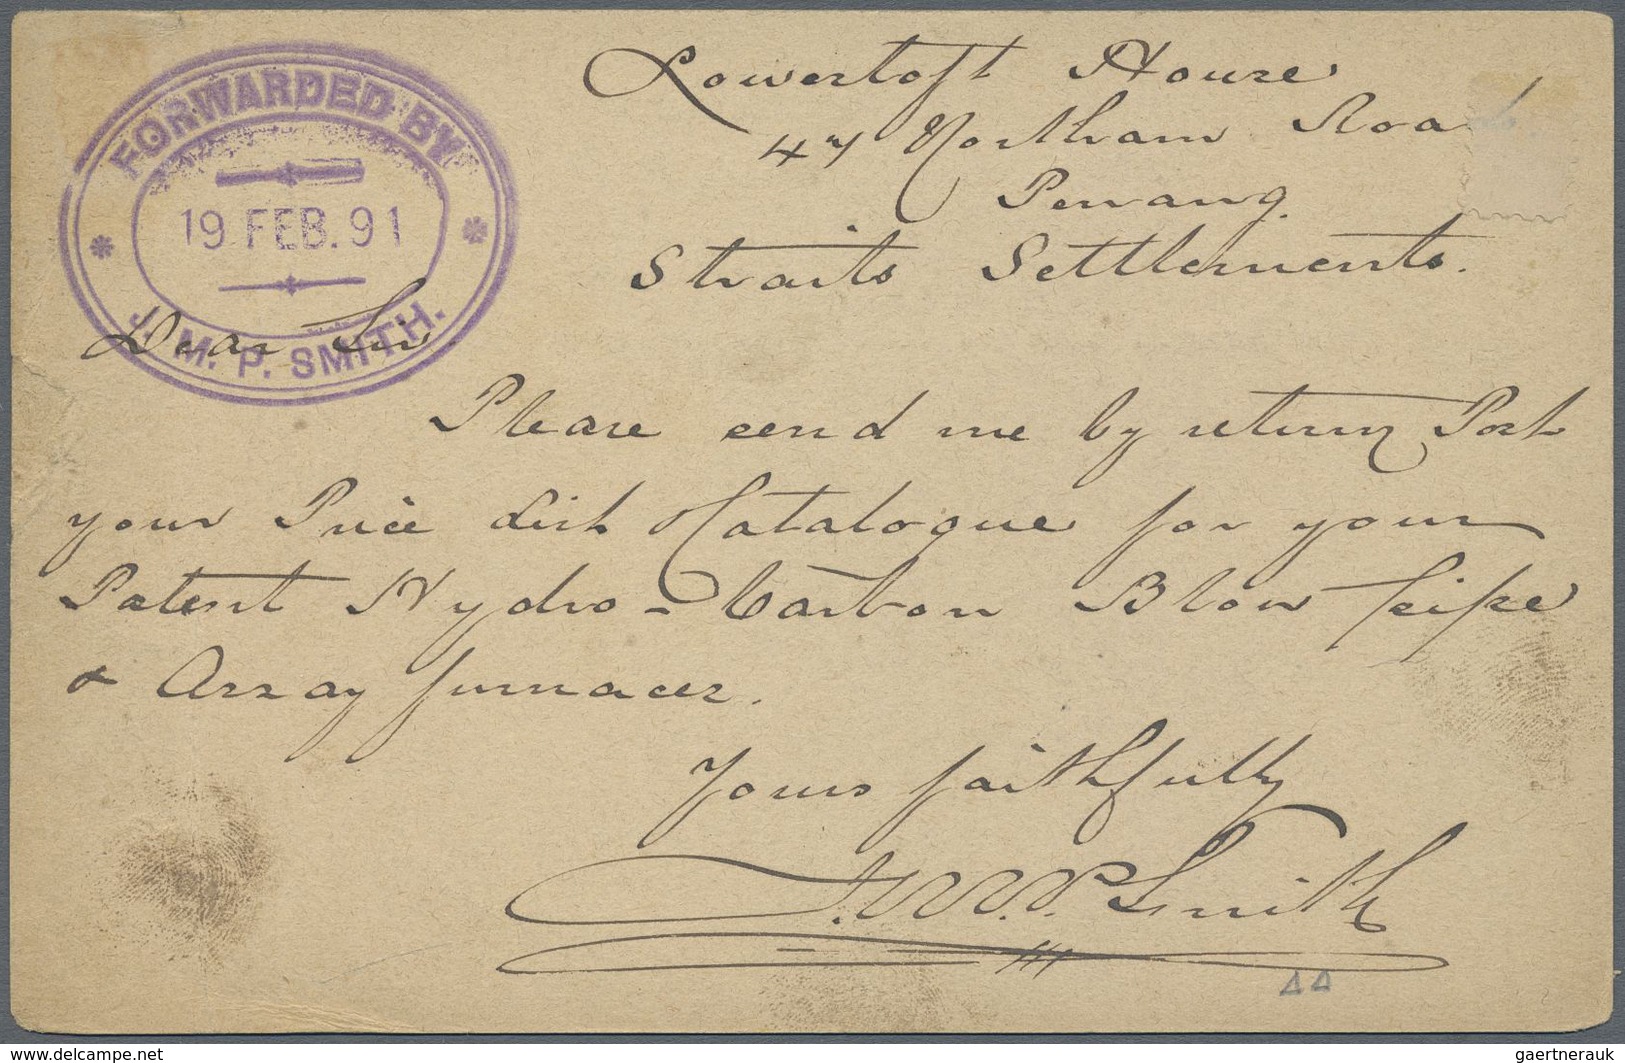 FORWARDED BY
19 FEB. 91
J. M. P. SMITH.
Lowestoft House
47 Northam Road
Penang.
Straits Settlements.
Dear Sir
Please send me by return Post
your Price List Catalogue for your
Patent Hydro-Carbon Blow pipe
& Assay furnaces.
Yours faithfully
J.M.P. Smith
44
www.delcampe.net
gaertnerauk